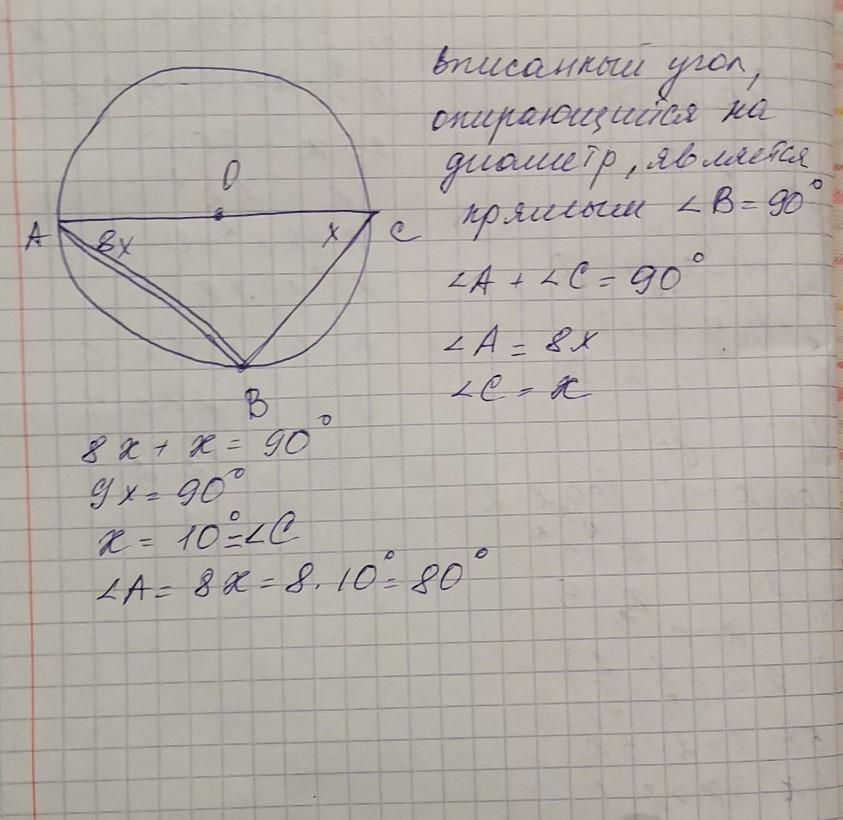 вписанный угол,
опирающийся на
диаметр, является
прямым ∠B = 90°
∠A + ∠C = 90°
∠A = 8x
∠C = x
O
A
8x
x
C
B
8x + x = 90°
9x = 90°
x = 10° = ∠C
∠A = 8x = 8 · 10° = 80°